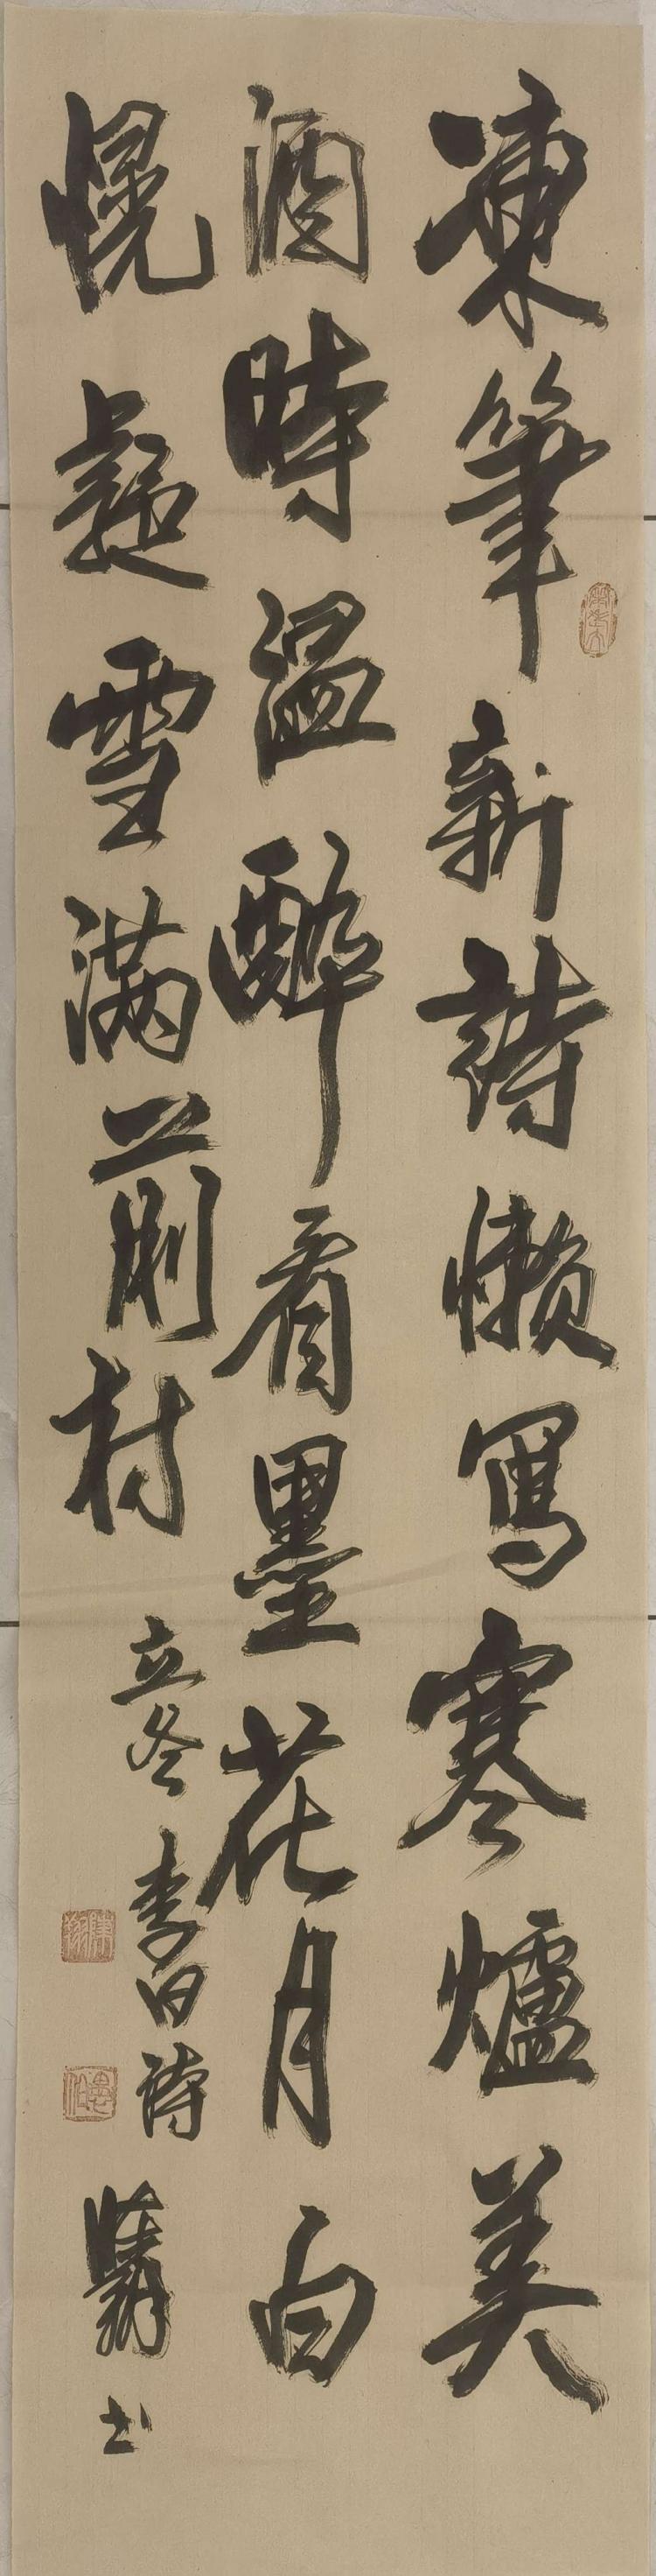 凍筆新詩懶寫寒爐美
酒時温醉看墨花月白
恍疑雪滿前村
立冬李白詩
書